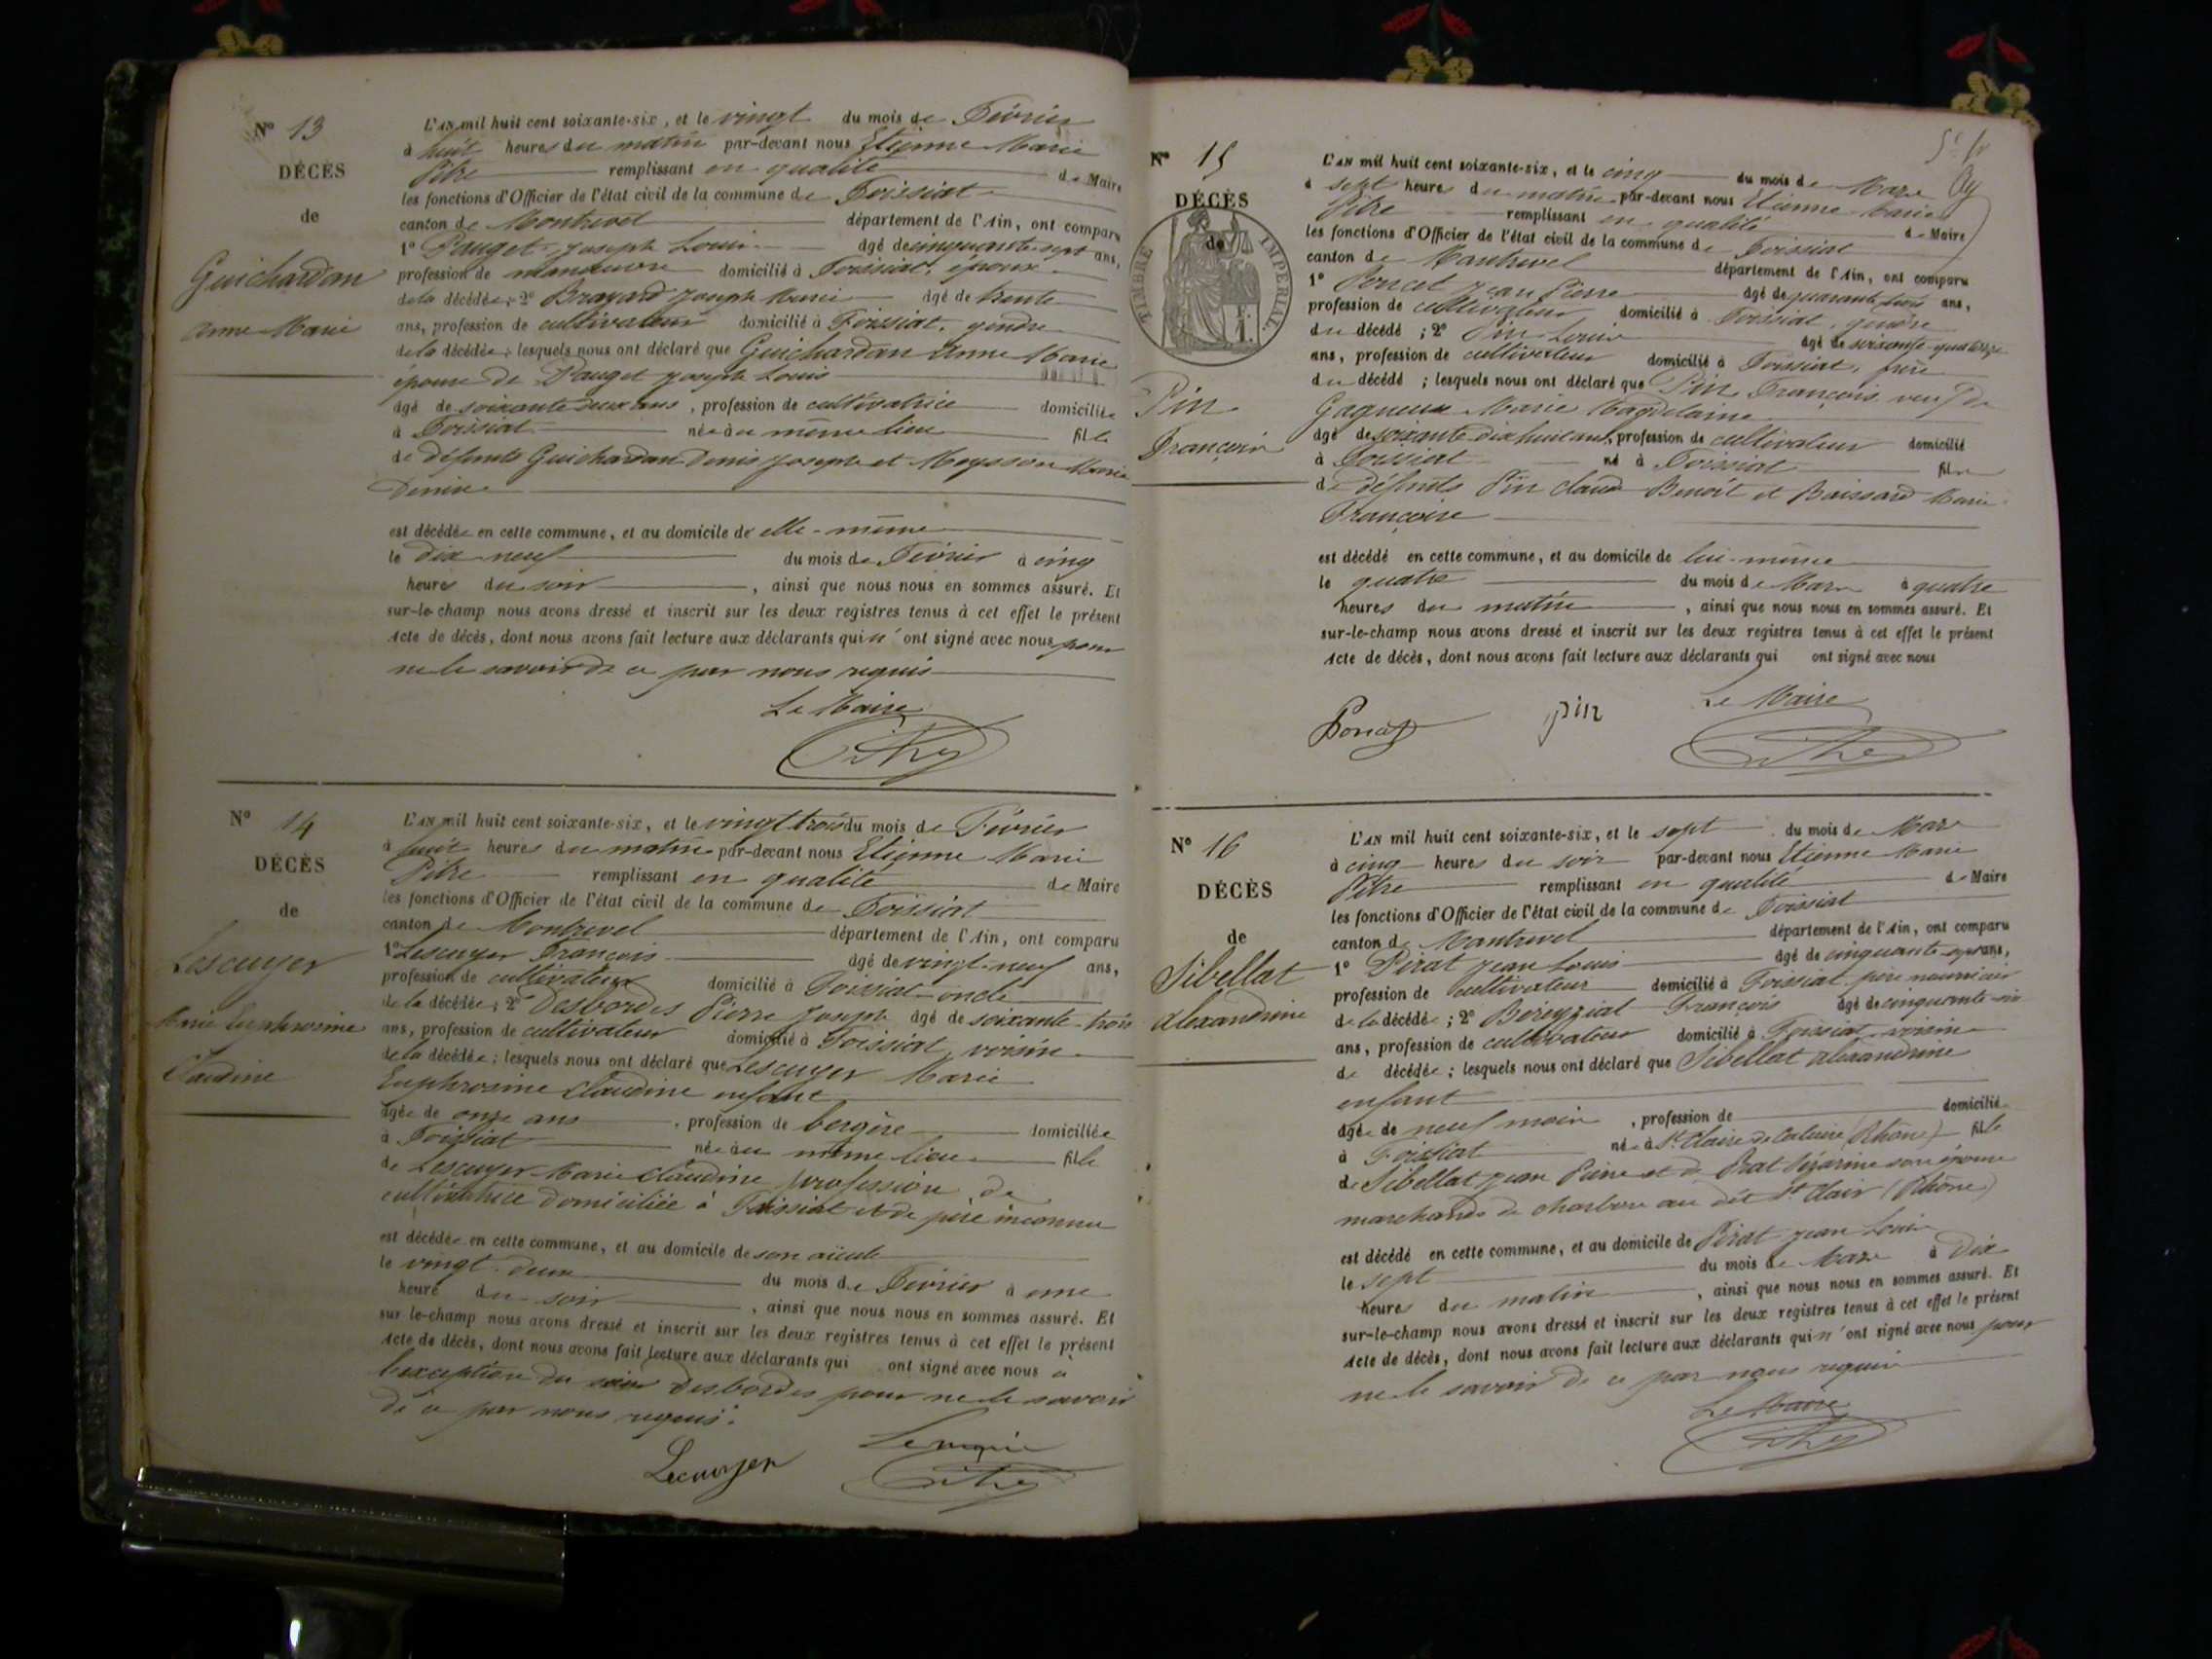 N° 13
DÉCÈS
de
Guichardan
Anne Marie
L'AN mil huit cent soixante-six, et le vingt du mois de Février
à huit heures du matin par-devant nous Etienne Marie
Pitre remplissant en qualité de Maire
les fonctions d'Officier de l'état civil de la commune de Foissiat
canton de Montrevel département de l'Ain, ont comparu
1° Pauget Joseph Louis âgé de cinquante sept ans,
profession de manœuvre domicilié à Foissiat, époux
de la décédée; 2° Brayard Joseph Marie âgé de trente
ans, profession de cultivateur domicilié à Foissiat, gendre
de la décédée; lesquels nous ont déclaré que Guichardan Anne Marie
épouse de Pauget Joseph Louis
âgé de soixante deux ans, profession de cultivatrice domiciliée
à Foissiat née au même lieu fille
de défunts Guichardan Denis Joseph et Moysson Marie
Denise
est décédée en cette commune, et au domicile de elle-même
le dix neuf du mois de Février à cinq
heures du soir, ainsi que nous nous en sommes assuré. Et
sur-le-champ nous avons dressé et inscrit sur les deux registres tenus à cet effet le présent
Acte de décès, dont nous avons fait lecture aux déclarants qui n'ont signé avec nous pour
ne le savoir de ce par nous requis
Le Maire
N° 14
DÉCÈS
de
Lescuyer
Marie Euphrosine
Claudine
L'AN mil huit cent soixante-six, et le vingt trois du mois de Février
à huit heures du matin par-devant nous Etienne Marie
Pitre remplissant en qualité de Maire
les fonctions d'Officier de l'état civil de la commune de Foissiat
canton de Montrevel département de l'Ain, ont comparu
1° Lescuyer François âgé de vingt-neuf ans,
profession de cultivateur domicilié à Foissiat oncle
de la décédée; 2° Desbordes Pierre Joseph âgé de soixante-trois
ans, profession de cultivateur domicilié à Foissiat, voisin
de la décédée; lesquels nous ont déclaré que Lescuyer Marie
Euphrosine Claudine enfant
âgée de onze ans, profession de bergère domiciliée
à Foissiat née au même lieu fille
de Lescuyer Marie Claudine profession de
cultivatrice domiciliée à Foissiat et de père inconnu
est décédée en cette commune, et au domicile de son aïeule
le vingt-deux du mois de Février à une
heure du soir, ainsi que nous nous en sommes assuré. Et
sur le-champ nous avons dressé et inscrit sur les deux registres tenus à cet effet le présent
Acte de décès, dont nous avons fait lecture aux déclarants qui ont signé avec nous à
l'exception du sieur Desbordes pour ne le savoir
de ce par nous requis.
Le maire
Lecuuyer
N° 15
DÉCÈS
de
TIMBRE IMPERIAL
Pin
François
L'AN mil huit cent soixante-six, et le cinq du mois de Mars
à sept heures du matin par-devant nous Etienne Marie
Pitre remplissant en qualité de Maire
les fonctions d'Officier de l'état civil de la commune de Foissiat
canton de Montrevel département de l'Ain, ont comparu
1° Poncet Jean Pierre âgé de quarante trois ans,
profession de cultivateur domicilié à Foissiat, gendre
du décédé; 2° Pin Louis âgé de soixante-quatorze
ans, profession de cultivateur domicilié à Foissiat, frère
du décédé; lesquels nous ont déclaré que Pin François veuf de
Gagneux Marie Magdelaine
âgé de soixante dix huit ans, profession de cultivateur domicilié
à Foissiat né à Foissiat fils
de défunts Pin Claude Benoît et Boissard Marie
Françoise
est décédé en cette commune, et au domicile de lui-même
le quatre du mois de Mars à quatre
heures du matin, ainsi que nous nous en sommes assuré. Et
sur-le-champ nous avons dressé et inscrit sur les deux registres tenus à cet effet le présent
Acte de décès, dont nous avons fait lecture aux déclarants qui ont signé avec nous
pin Le Maire
N° 16
DÉCÈS
de
Sibellat
Alexandrine
L'AN mil huit cent soixante-six, et le sept du mois de Mars
à cinq heures du soir par-devant nous Etienne Marie
Pitre remplissant en qualité de Maire
les fonctions d'Officier de l'état civil de la commune de Foissiat
canton de Montrevel département de l'Ain, ont comparu
1° Pirat Jean Louis âgé de cinquante sept ans,
profession de cultivateur domicilié à Foissiat père nourricier
de la décédée; 2° Béréyziat François âgé de cinquante six
ans, profession de cultivateur domicilié à Foissiat voisin
de décédée; lesquels nous ont déclaré que Sibellat Alexandrine
enfant
âgée de neuf mois, profession de domicilié
à Foissiat née à St Claire de Caluire (Rhône) fille
de Sibellat Jean Pierre et de Prat Sézarine son épouse
marchands de charbon au dit St Clair (Rhône)
est décédé en cette commune, et au domicile de Pirat Jean Louis
le sept du mois de Mars à Dix
heures du matin, ainsi que nous nous en sommes assuré. Et
sur-le-champ nous avons dressé et inscrit sur les deux registres tenus à cet effet le présent
Acte de décès, dont nous avons fait lecture aux déclarants qui n'ont signé avec nous pour
ne le savoir de ce par nous requis
Le Maire